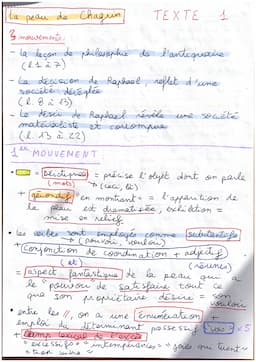 La peau de Chagrin TEXTE 1
3 mouvements
- la leçon de philosophie de l'antiquaire
(l. 1 à 7)
- La décision de Raphaël, reflet d'une
société déréglée
(l. 8 à 13)
- le désir de Raphaël révèle une société
matérialiste et corrompue
(l. 13 à 22)
1er MOUVEMENT
= précise l'objet dont on parle
(mots) (ceci, ici)
+ gérondif "en montrant" = l'apparition de
la peau est dramatisée, exhibition =
mise en relief.
• les verbes sont employés comme substantifs
(pouvoir, vouloir)
+ conjonction de coordination + adjectif
(et) (réunis)
= aspect fantastique de la peau qui a
le pouvoir de satisfaire tout ce
que son propriétaire désire = son
vouloir
• entre les //, on a une énumération +
emploi du déterminant possessif "vos" x5
+ champ lexical de l'excès
"excessifs" "intempérances" "joies qui tuent"